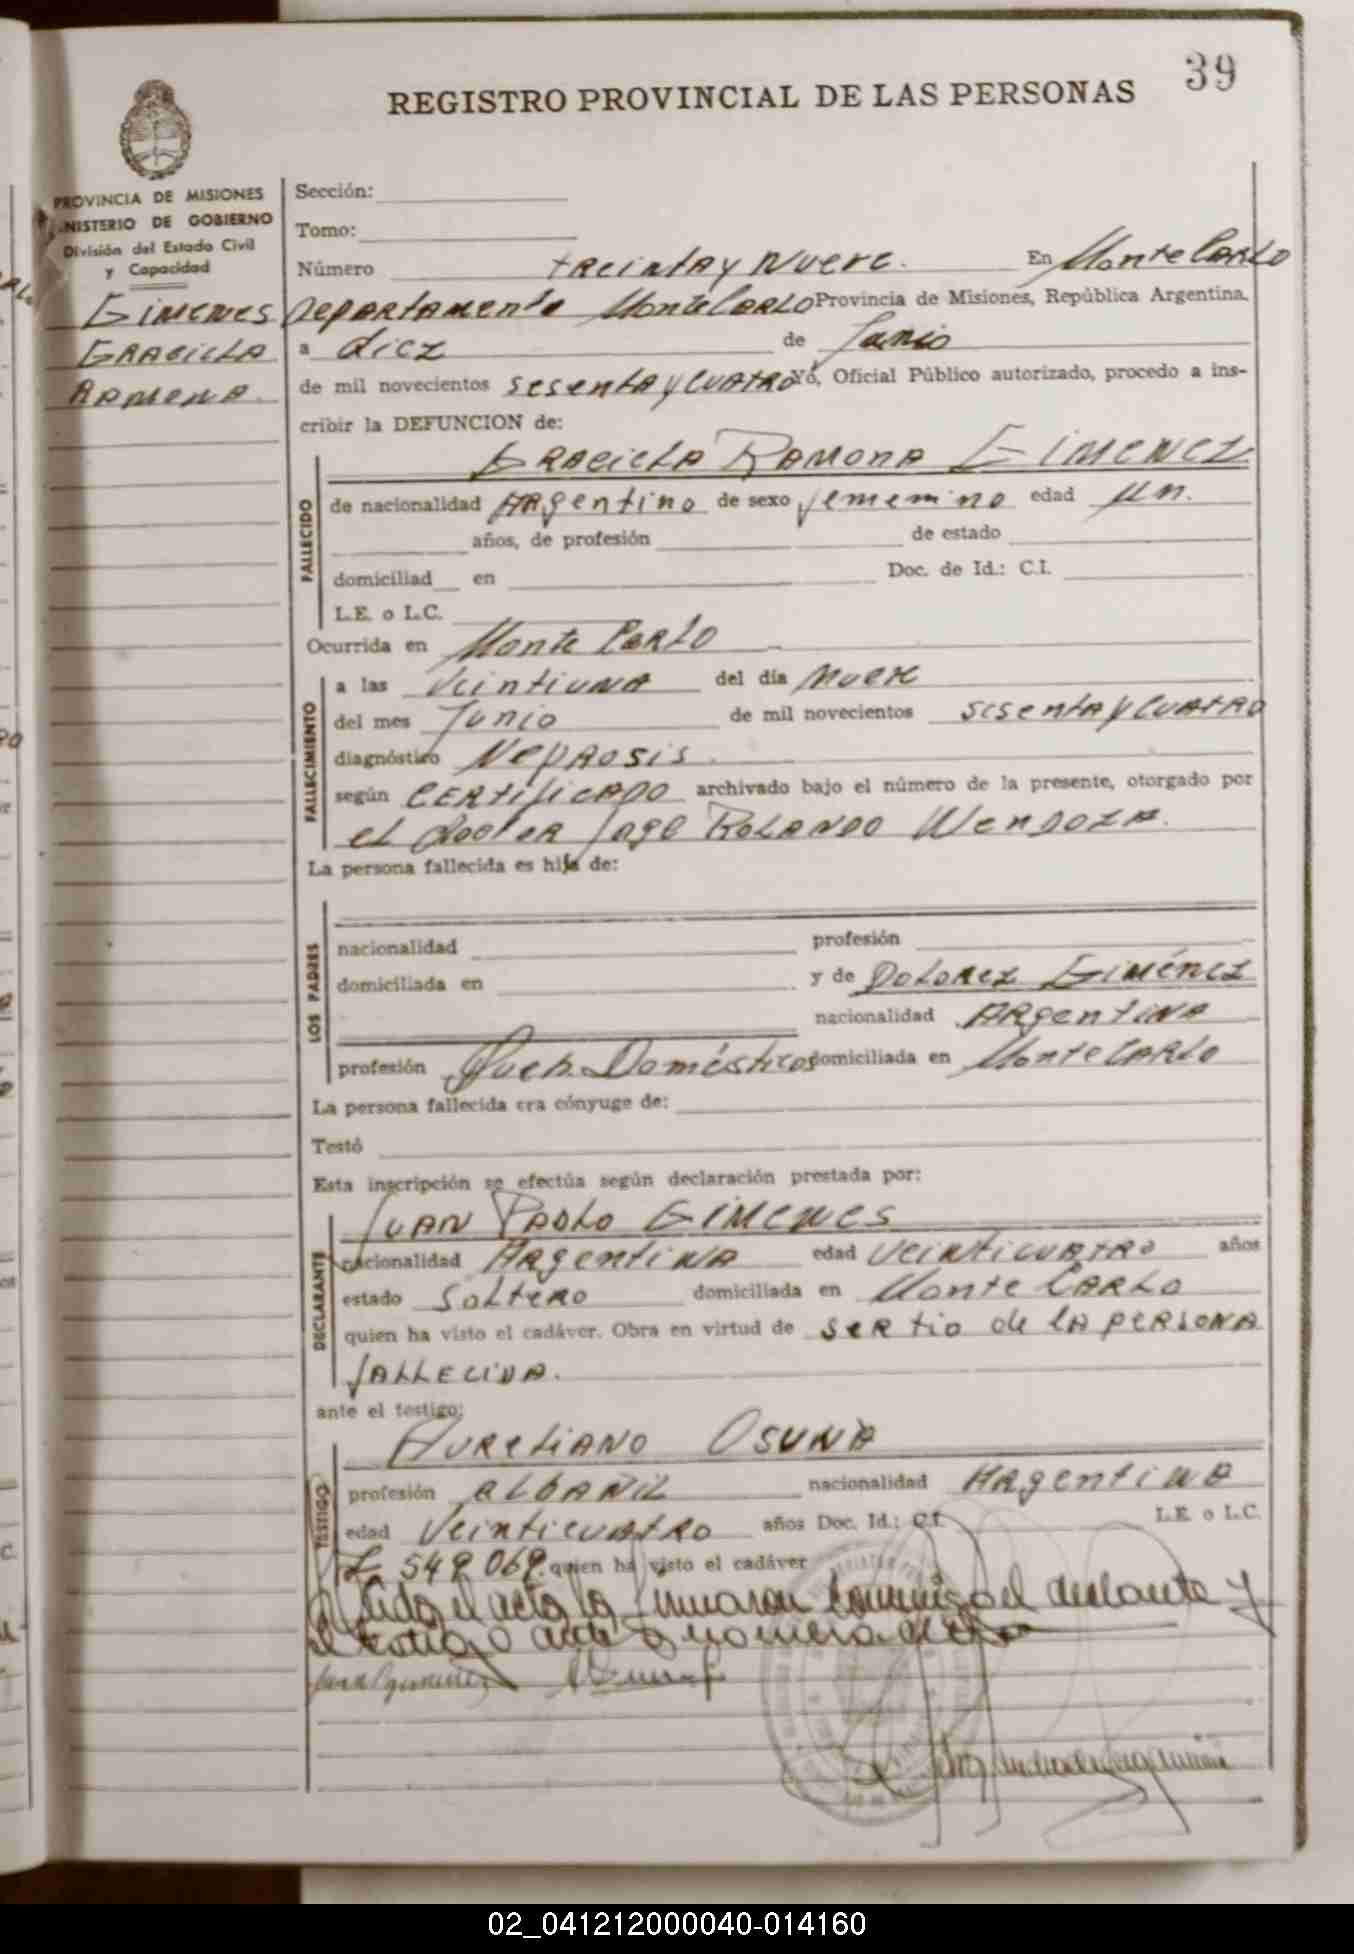 39
REGISTRO PROVINCIAL DE LAS PERSONAS
PROVINCIA DE MISIONES
MINISTERIO DE GOBIERNO
División del Estado Civil
y Capacidad
Gimenes
Graciela
Ramona.
Sección:
Tomo:
Número treinta y nueve. En Monte Carlo
Departamento Monte Carlo Provincia de Misiones, República Argentina,
a diez de Junio
de mil novecientos sesenta y cuatro Yo, Oficial Público autorizado, procedo a ins-
cribir la DEFUNCION de:
Graciela Ramona Gimenez
FALLECIDO
de nacionalidad Argentino de sexo femenino edad un.
años, de profesión de estado
domiciliad en Doc. de Id.: C.I.
L.E. o L.C.
Ocurrida en Monte Carlo
FALLECIMIENTO
a las veintiuna del día nueve
del mes Junio de mil novecientos sesenta y cuatro
diagnóstico Neprosis.
según certificado archivado bajo el número de la presente, otorgado por
el doctor Jorge Rolando Mendoza.
La persona fallecida es hija de:
LOS PADRES
nacionalidad profesión
domiciliada en y de Dolorez Giménez
nacionalidad Argentina
profesión Queh. Domésticos domiciliada en Monte Carlo
La persona fallecida era cónyuge de:
Testó
Esta inscripción se efectúa según declaración prestada por:
Juan Pablo Gimenes
DECLARANTE
nacionalidad Argentina edad veinticuatro años
estado soltero domiciliada en Monte Carlo
quien ha visto el cadáver. Obra en virtud de ser tio de la persona
fallecida.
ante el testigo:
Aureliano Osuna
TESTIGO
profesión albañil nacionalidad Argentina
edad veinticuatro años Doc. Id.: C.I. L.E. o L.C.
549.069. quien ha visto el cadáver
Leida el acta la firmaron conmigo el declarante y
el testigo
02_041212000040-014160